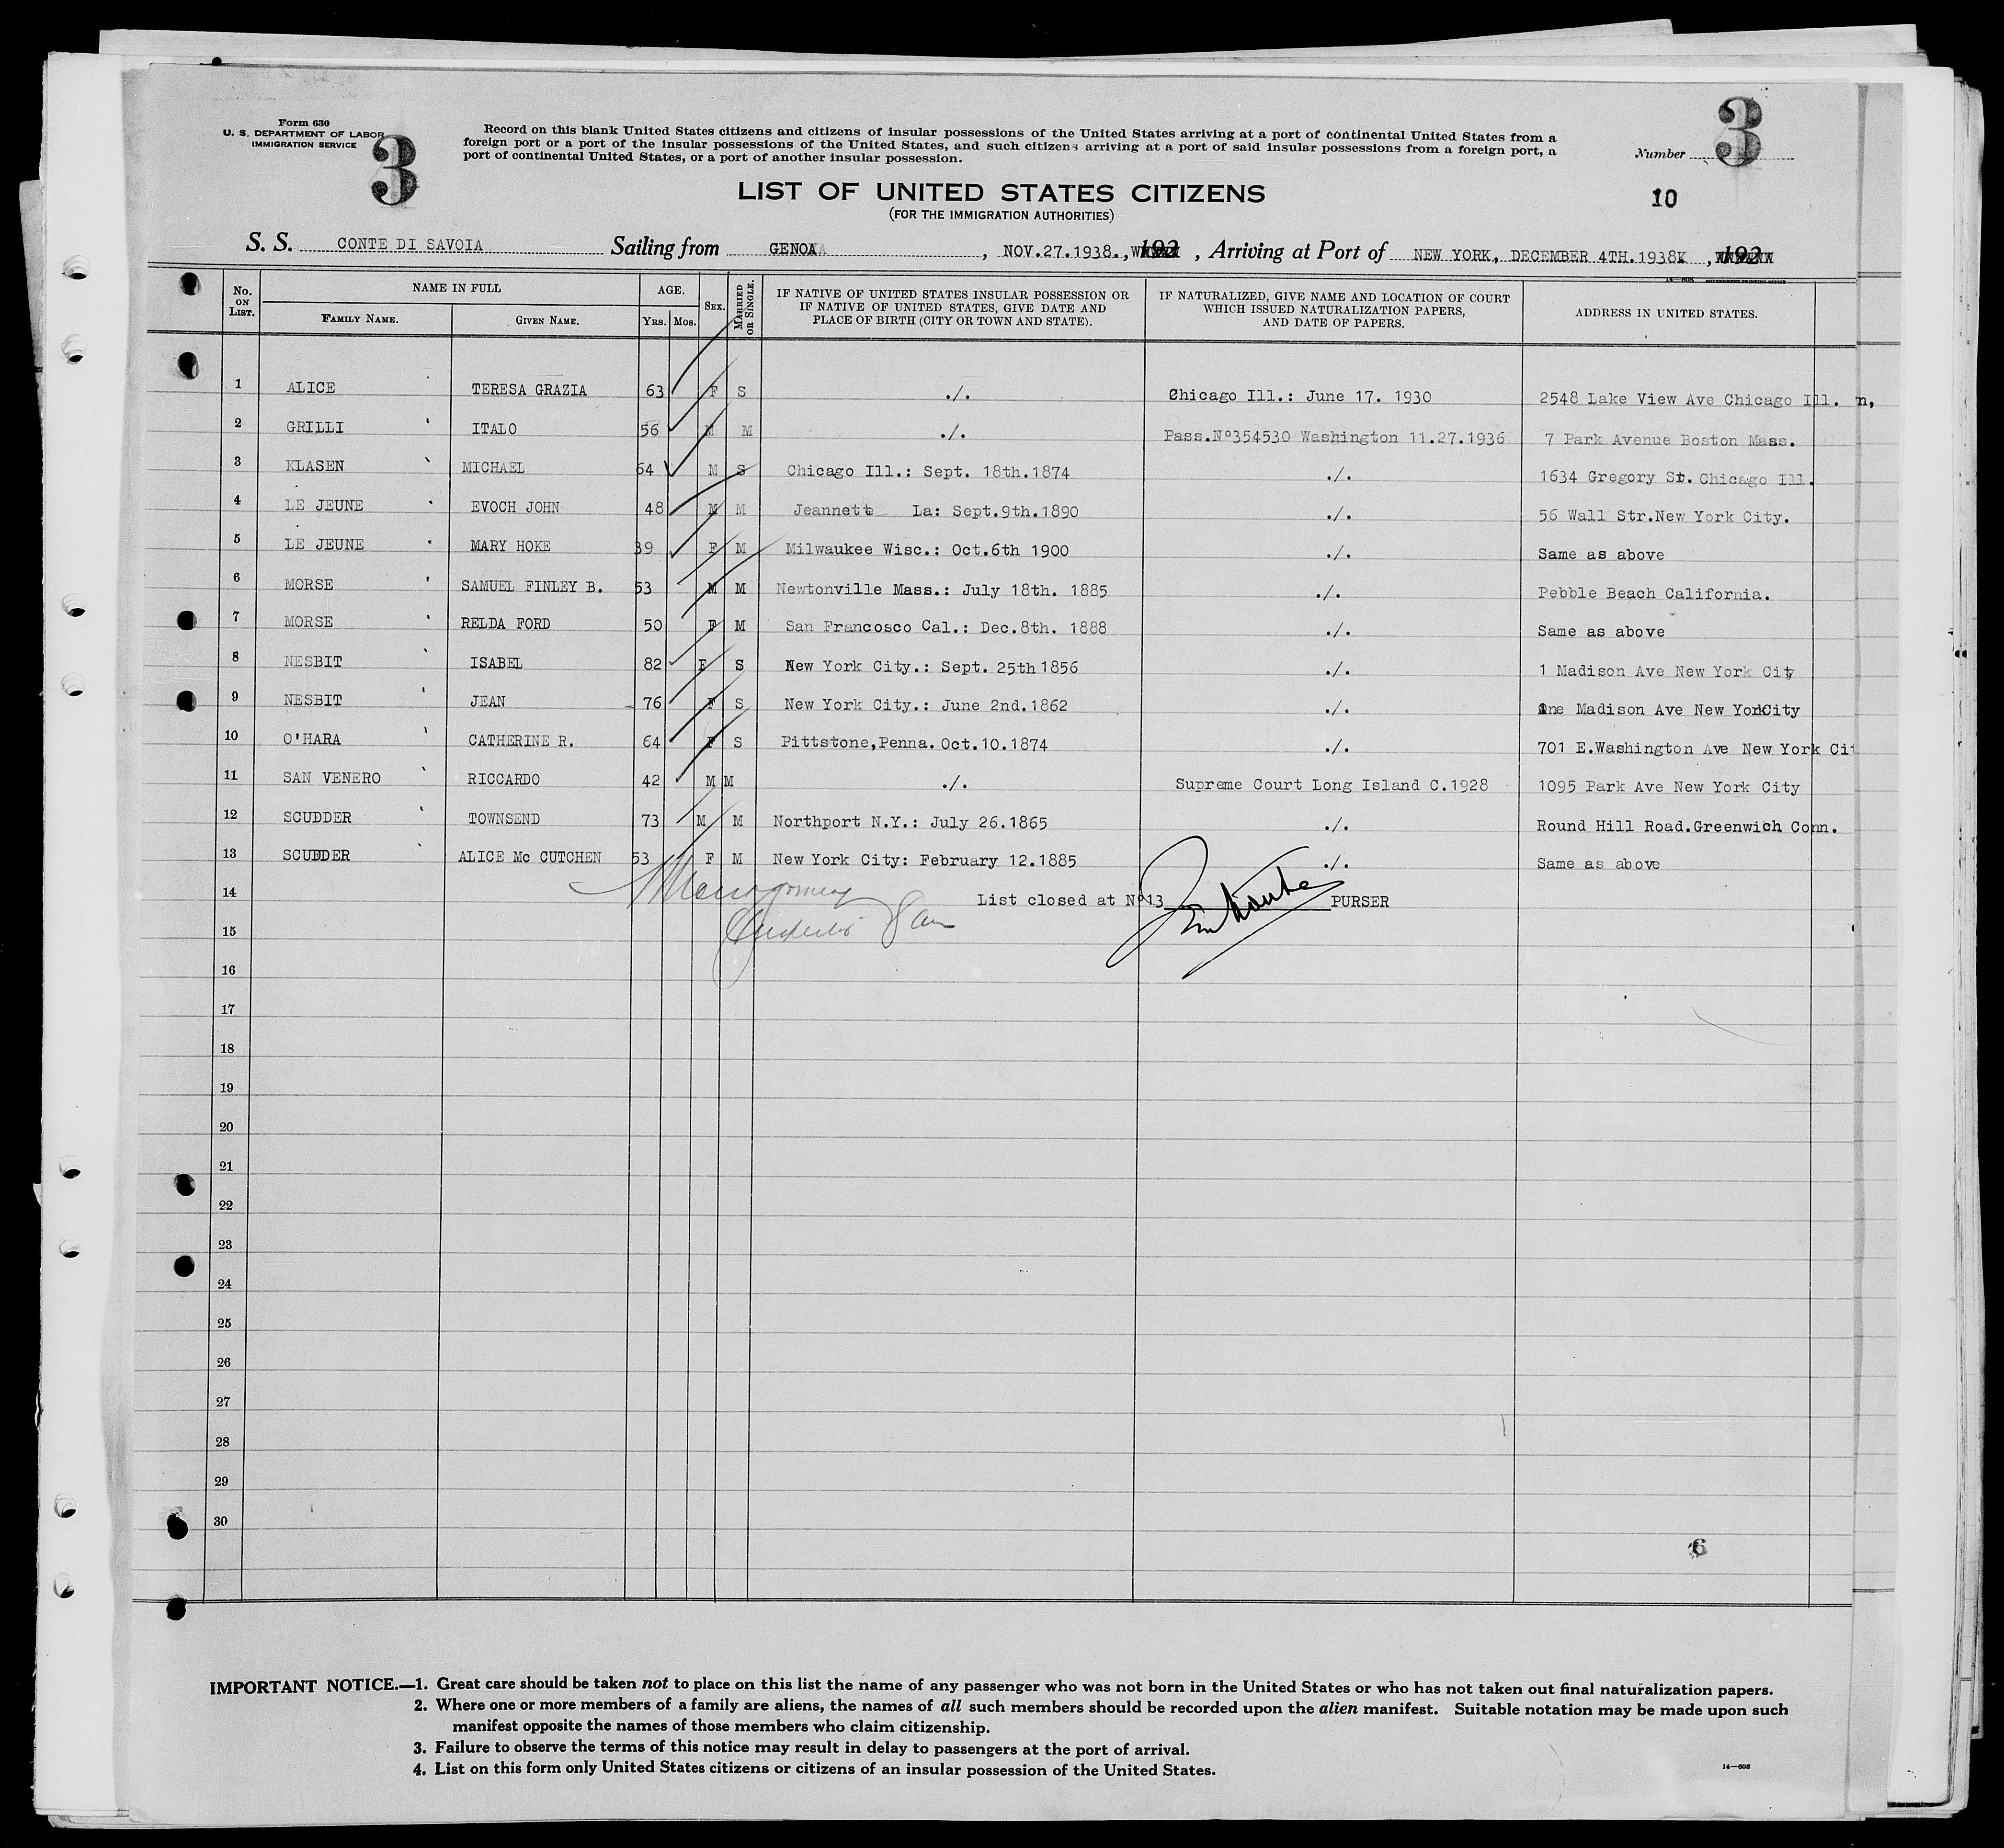 Form 630
U. S. DEPARTMENT OF LABOR
IMMIGRATION SERVICE
3
Record on this blank United States citizens and citizens of insular possessions of the United States arriving at a port of continental United States from a
foreign port or a port of the insular possessions of the United States, and such citizens arriving at a port of said insular possessions from a foreign port, a
port of continental United States, or a port of another insular possession.
Number 3
LIST OF UNITED STATES CITIZENS
(FOR THE IMMIGRATION AUTHORITIES)
10
S. S. CONTE DI SAVOIA Sailing from GENOA, NOV.27.1938., 192 , Arriving at Port of NEW YORK, DECEMBER 4TH.1938, 192
No. ON LIST. NAME IN FULL AGE. SEX. MARRIED OR SINGLE. IF NATIVE OF UNITED STATES INSULAR POSSESSION OR IF NATIVE OF UNITED STATES, GIVE DATE AND PLACE OF BIRTH (CITY OR TOWN AND STATE). IF NATURALIZED, GIVE NAME AND LOCATION OF COURT WHICH ISSUED NATURALIZATION PAPERS, AND DATE OF PAPERS. ADDRESS IN UNITED STATES.
FAMILY NAME. GIVEN NAME. YRS. MOS.
1 ALICE TERESA GRAZIA 63 F S ./. Chicago Ill.: June 17. 1930 2548 Lake View Ave Chicago Ill. n,
2 GRILLI ITALO 56 M M ./. Pass.Nº354530 Washington 11.27.1936 7 Park Avenue Boston Mass.
3 KLASEN MICHAEL 64 M S Chicago Ill.: Sept. 18th.1874 ./. 1634 Gregory St. Chicago Ill.
4 LE JEUNE EVOCH JOHN 48 M M Jeannett La: Sept.9th.1890 ./. 56 Wall Str.New York City.
5 LE JEUNE MARY HOKE 39 F M Milwaukee Wisc.: Oct.6th 1900 ./. Same as above
6 MORSE SAMUEL FINLEY B. 53 M M Newtonville Mass.: July 18th. 1885 ./. Pebble Beach California.
7 MORSE RELDA FORD 50 F M San Francosco Cal.: Dec.8th. 1888 ./. Same as above
8 NESBIT ISABEL 82 F S New York City.: Sept. 25th 1856 ./. 1 Madison Ave New York City
9 NESBIT JEAN 76 F S New York City.: June 2nd.1862 ./. One Madison Ave New York City
10 O'HARA CATHERINE R. 64 F S Pittstone,Penna. Oct.10.1874 ./. 701 E.Washington Ave New York Cit
11 SAN VENERO RICCARDO 42 M M ./. Supreme Court Long Island C.1928 1095 Park Ave New York City
12 SCUDDER TOWNSEND 73 M M Northport N.Y.: July 26.1865 ./. Round Hill Road.Greenwich Conn.
13 SCUDDER ALICE Mc CUTCHEN 53 F M New York City: February 12.1885 ./. Same as above
14 List closed at Nº13 PURSER
15
16
17
18
19
20
21
22
23
24
25
26
27
28
29
30
6
IMPORTANT NOTICE.—1. Great care should be taken not to place on this list the name of any passenger who was not born in the United States or who has not taken out final naturalization papers.
2. Where one or more members of a family are aliens, the names of all such members should be recorded upon the alien manifest. Suitable notation may be made upon such
manifest opposite the names of those members who claim citizenship.
3. Failure to observe the terms of this notice may result in delay to passengers at the port of arrival.
4. List on this form only United States citizens or citizens of an insular possession of the United States.
14—608